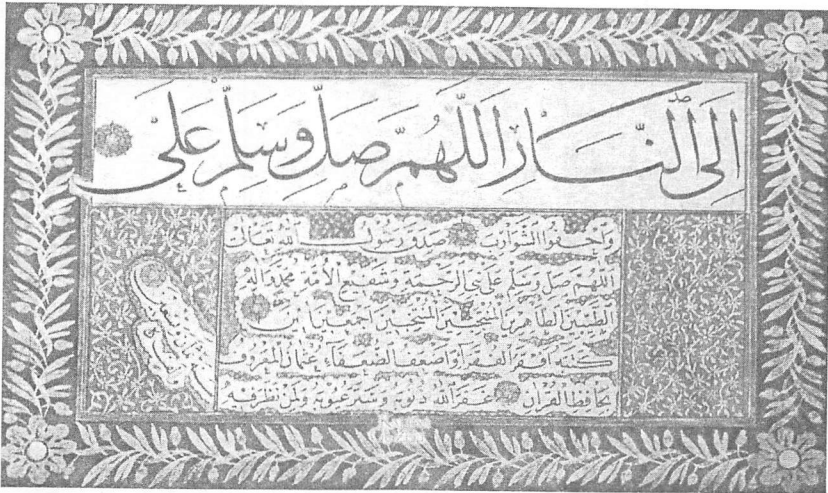 اِلَى النَّارِ اَللّٰهُمَّ صَلِّ وَسَلِّمْ عَلٰى
وَاحفوا الشوارب صدق رسول الله تعالى
اللهم صل وسلم على نبى الرحمة وشفيع الأمة محمد وآله
الطيبين الطاهرين المنتجبين اجمعين
كتبه افقر الفقراء واضعف الضعفاء عثمان المعروف
بحافظ القرآن غفر الله ذنوبه وستر عيوبه ولمن نظر فيه